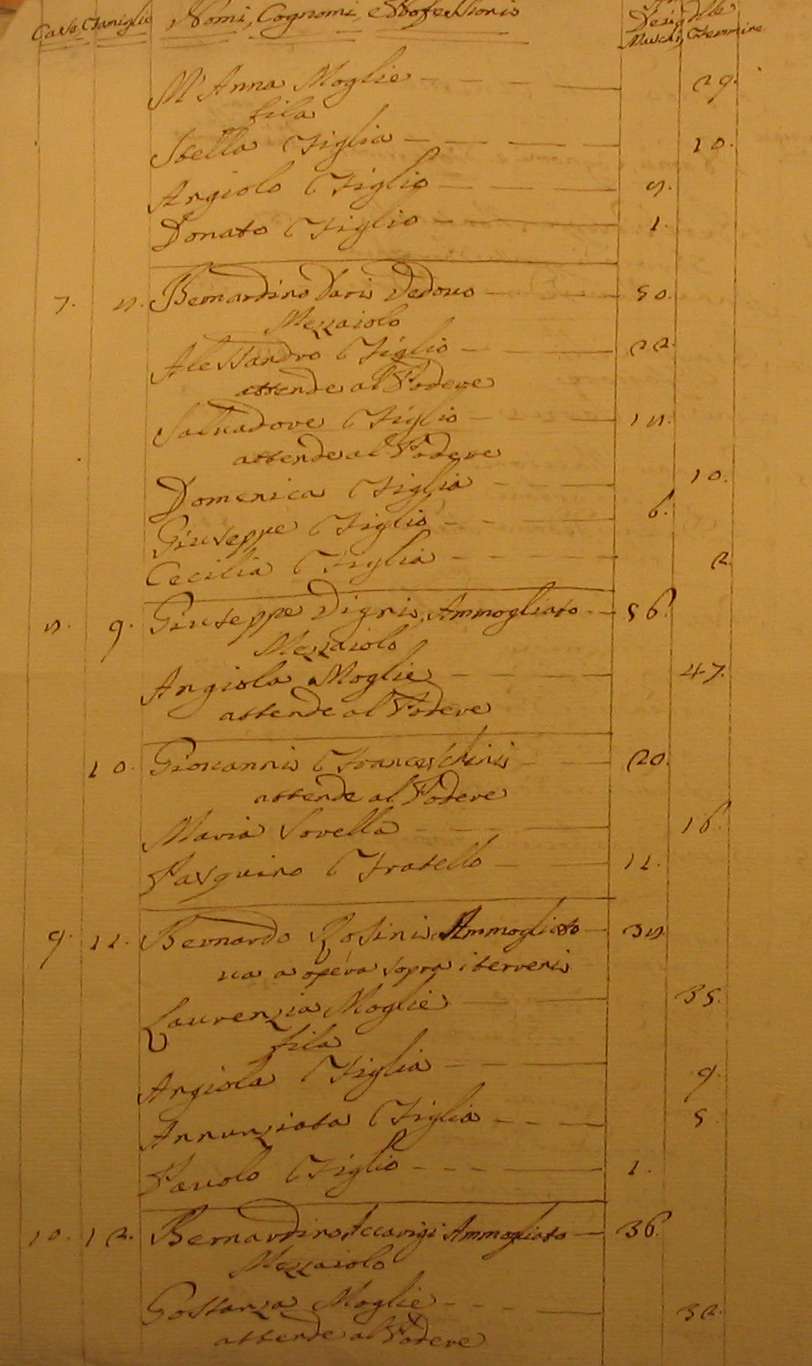 Case Famiglie Nomi, Cognomi, e Professioni Maschi, Femmine
M Anna Moglie 29.
fila
Stella Figlia 10.
Angiolo Figlio 8.
Donato Figlio 1.
7. 8. Bernardino Vedovo 50.
Mezzaiolo
Alessandro Figlio 22.
attende al Podere
Salvadore Figlio 18.
attende al Podere
Domenica Figlia 10.
Giuseppe Figlio 6.
Cecilia Figlia 2.
8. 9. Giuseppe Ammogliato 56.
Mezzaiolo
Angiola Moglie 47.
attende al Podere
10. Giovanni Franceschini 20.
attende al Podere
Maria Sorella 16.
Pasquino Fratello 11.
9. 11. Bernardo Rosini Ammogliato 38.
va a opera sopra i terreni
Laurenzia Moglie 35.
fila
Angiola Figlia 9.
Annunziata Figlia 5.
Pavolo Figlio 1.
10. 12. Bernardino Accarigi Ammogliato 36.
Mezzaiolo
Gostanza Moglie 32.
attende al Podere